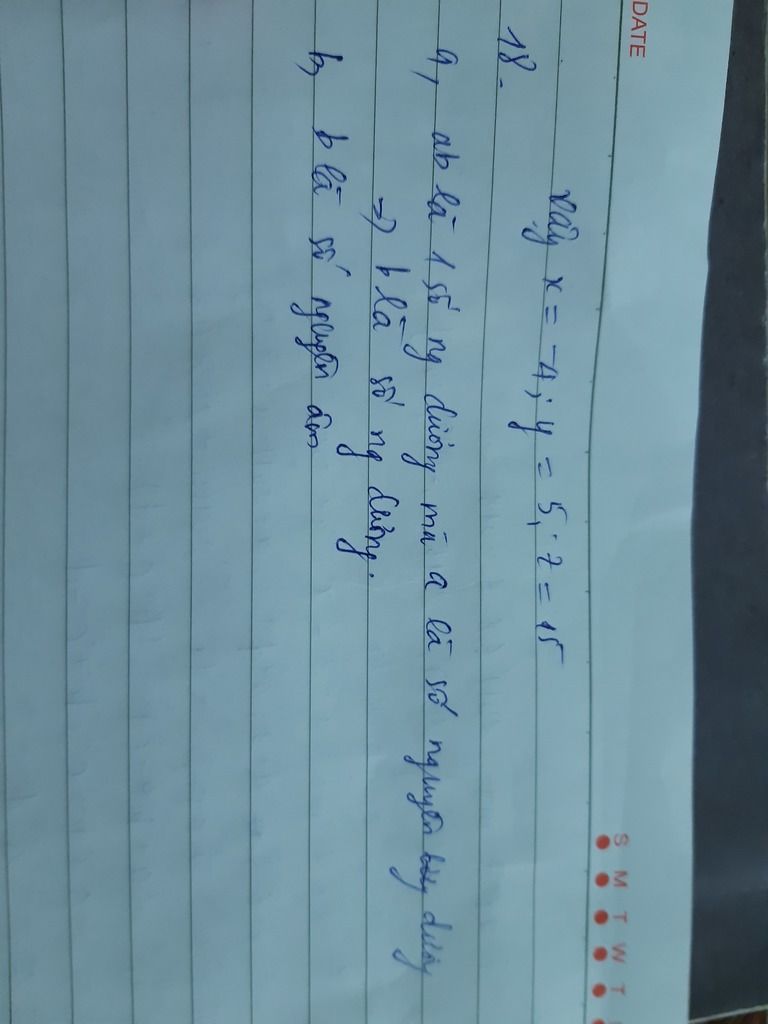 DATE
S M T W T
Vậy x = -4; y = 5; z = 15
18.
a, ab là 1 số ng dương mà a là số nguyên dương
=> b là số ng dương.
b, b là số nguyên âm